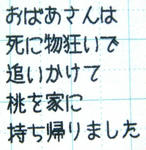 おばあさんは
死に物狂いで
追いかけて
桃を家に
持ち帰りました